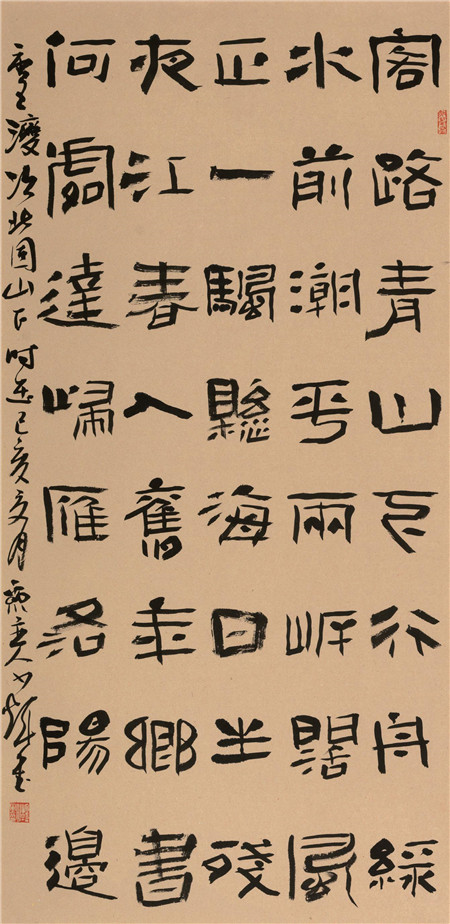 客路青山下行舟綠
水前潮平兩岸闊風
正一颿懸海日生殘
夜江春入舊年鄉書
何處達歸雁洛陽邊
唐王灣次北固山下时在己亥亥月